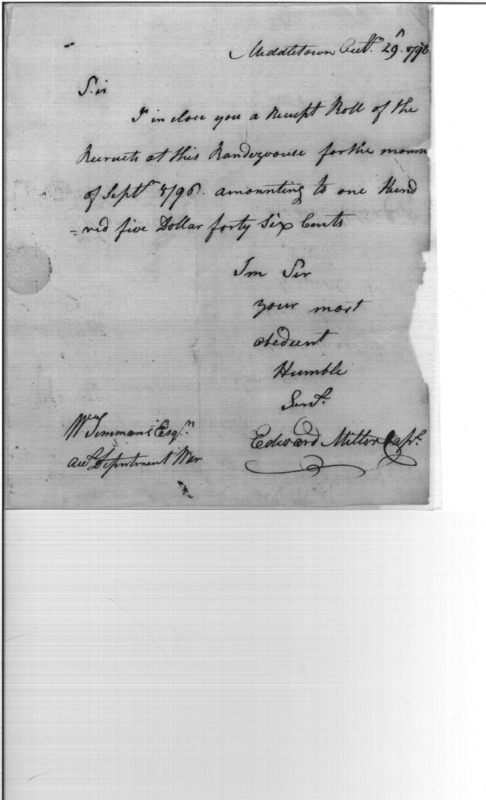 Middletown Octr. 29th. 1796
Sir
I in close you a Receipt Roll of the
Recruits at this Randezvouse for the month
of Septr. 1796. amounting to one Hund
=red five Dollar forty Six Cents
I'm Sir
your most
obedient
Humble
Servt.
Wm. Simmons Esqr.
Edward Miller Capt.
acct. Department War